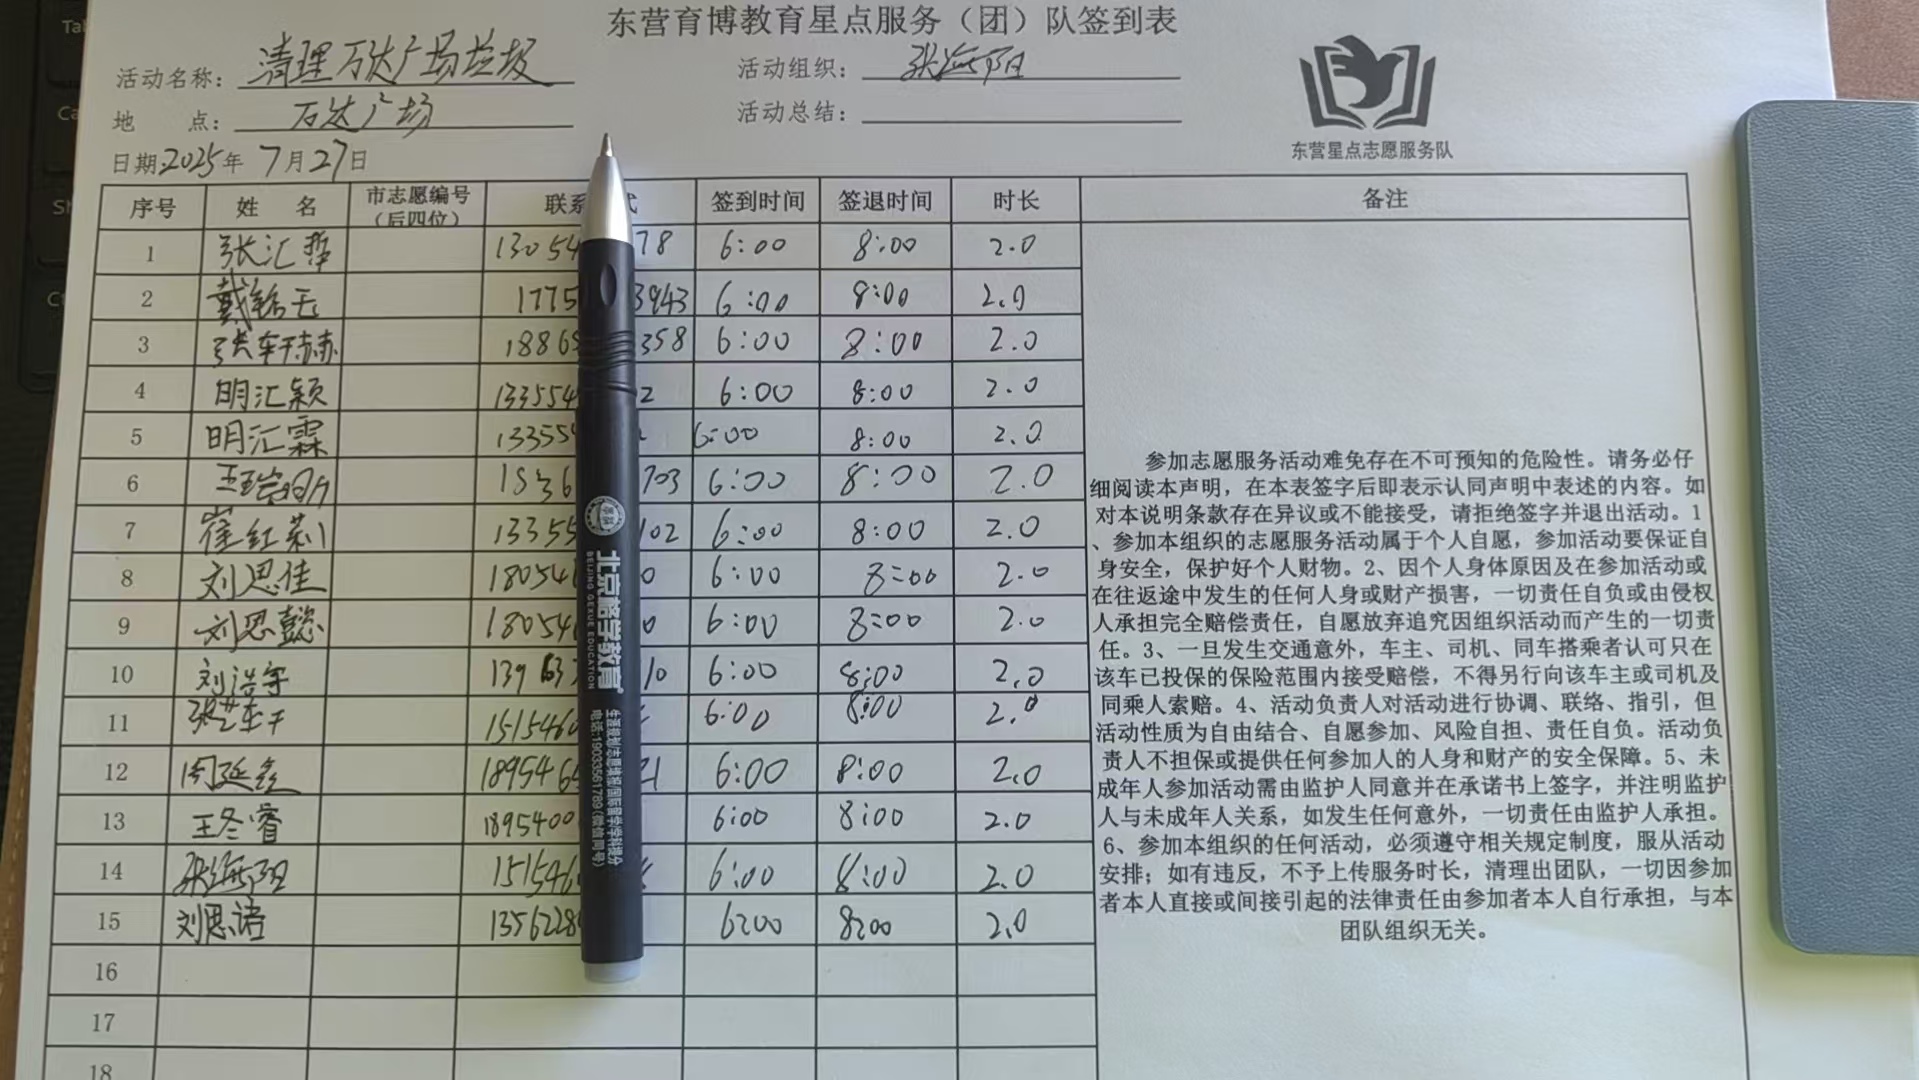 东营育博教育星点服务（团）队签到表
活动名称： 清理万达广场垃圾 活动组织： 张海阳
地 点： 万达广场 活动总结：
日期：2025年7月27日
东营星点志愿服务队
序号 姓 名 市志愿编号（后四位） 联系 式 签到时间 签退时间 时长 备注
1 张汇哲 13054 78 6:00 8:00 2.0
2 1775 3943 6:00 8:00 2.0
3 张轩赫 1886 358 6:00 8:00 2.0
4 明汇颖 133554 2 6:00 8:00 2.0
5 明汇霖 13355 6:00 8:00 2.0
6 1536 703 6:00 8:00 2.0
7 崔红莉 13355 102 6:00 8:00 2.0
8 刘思佳 18054 0 6:00 8:00 2.0
9 刘思懿 18054 0 6:00 8:00 2.0
10 刘浩宇 139637 10 6:00 8:00 2.0
11 1515460 6:00 8:00 2.0
12 周延鑫 1895465 21 6:00 8:00 2.0
13 王冬睿 1895400 6:00 8:00 2.0
14 张海阳 151546 6:00 8:00 2.0
15 刘思语 1356228 6:00 8:00 2.0
16
17
18
参加志愿服务活动难免存在不可预知的危险性。请务必仔
细阅读本声明，在本表签字后即表示认同声明中表述的内容。如
对本说明条款存在异议或不能接受，请拒绝签字并退出活动。1
、参加本组织的志愿服务活动属于个人自愿，参加活动要保证自
身安全，保护好个人财物。2、因个人身体原因及在参加活动或
在往返途中发生的任何人身或财产损害，一切责任自负或由侵权
人承担完全赔偿责任，自愿放弃追究因组织活动而产生的一切责
任。3、一旦发生交通意外，车主、司机、同车搭乘者认可只在
该车已投保的保险范围内接受赔偿，不得另行向该车主或司机及
同乘人索赔。4、活动负责人对活动进行协调、联络、指引，但
活动性质为自由结合、自愿参加、风险自担、责任自负。活动负
责人不担保或提供任何参加人的人身和财产的安全保障。5、未
成年人参加活动需由监护人同意并在承诺书上签字，并注明监护
人与未成年人关系，如发生任何意外，一切责任由监护人承担。
6、参加本组织的任何活动，必须遵守相关规定制度，服从活动
安排；如有违反，不予上传服务时长，清理出团队，一切因参加
者本人直接或间接引起的法律责任由参加者本人自行承担，与本
团队组织无关。
北京格学教育
BEIJING GEXUE EDUCATION
生涯规划/志愿填报/国际留学/学科提分
电话:19033561789(微信同号)